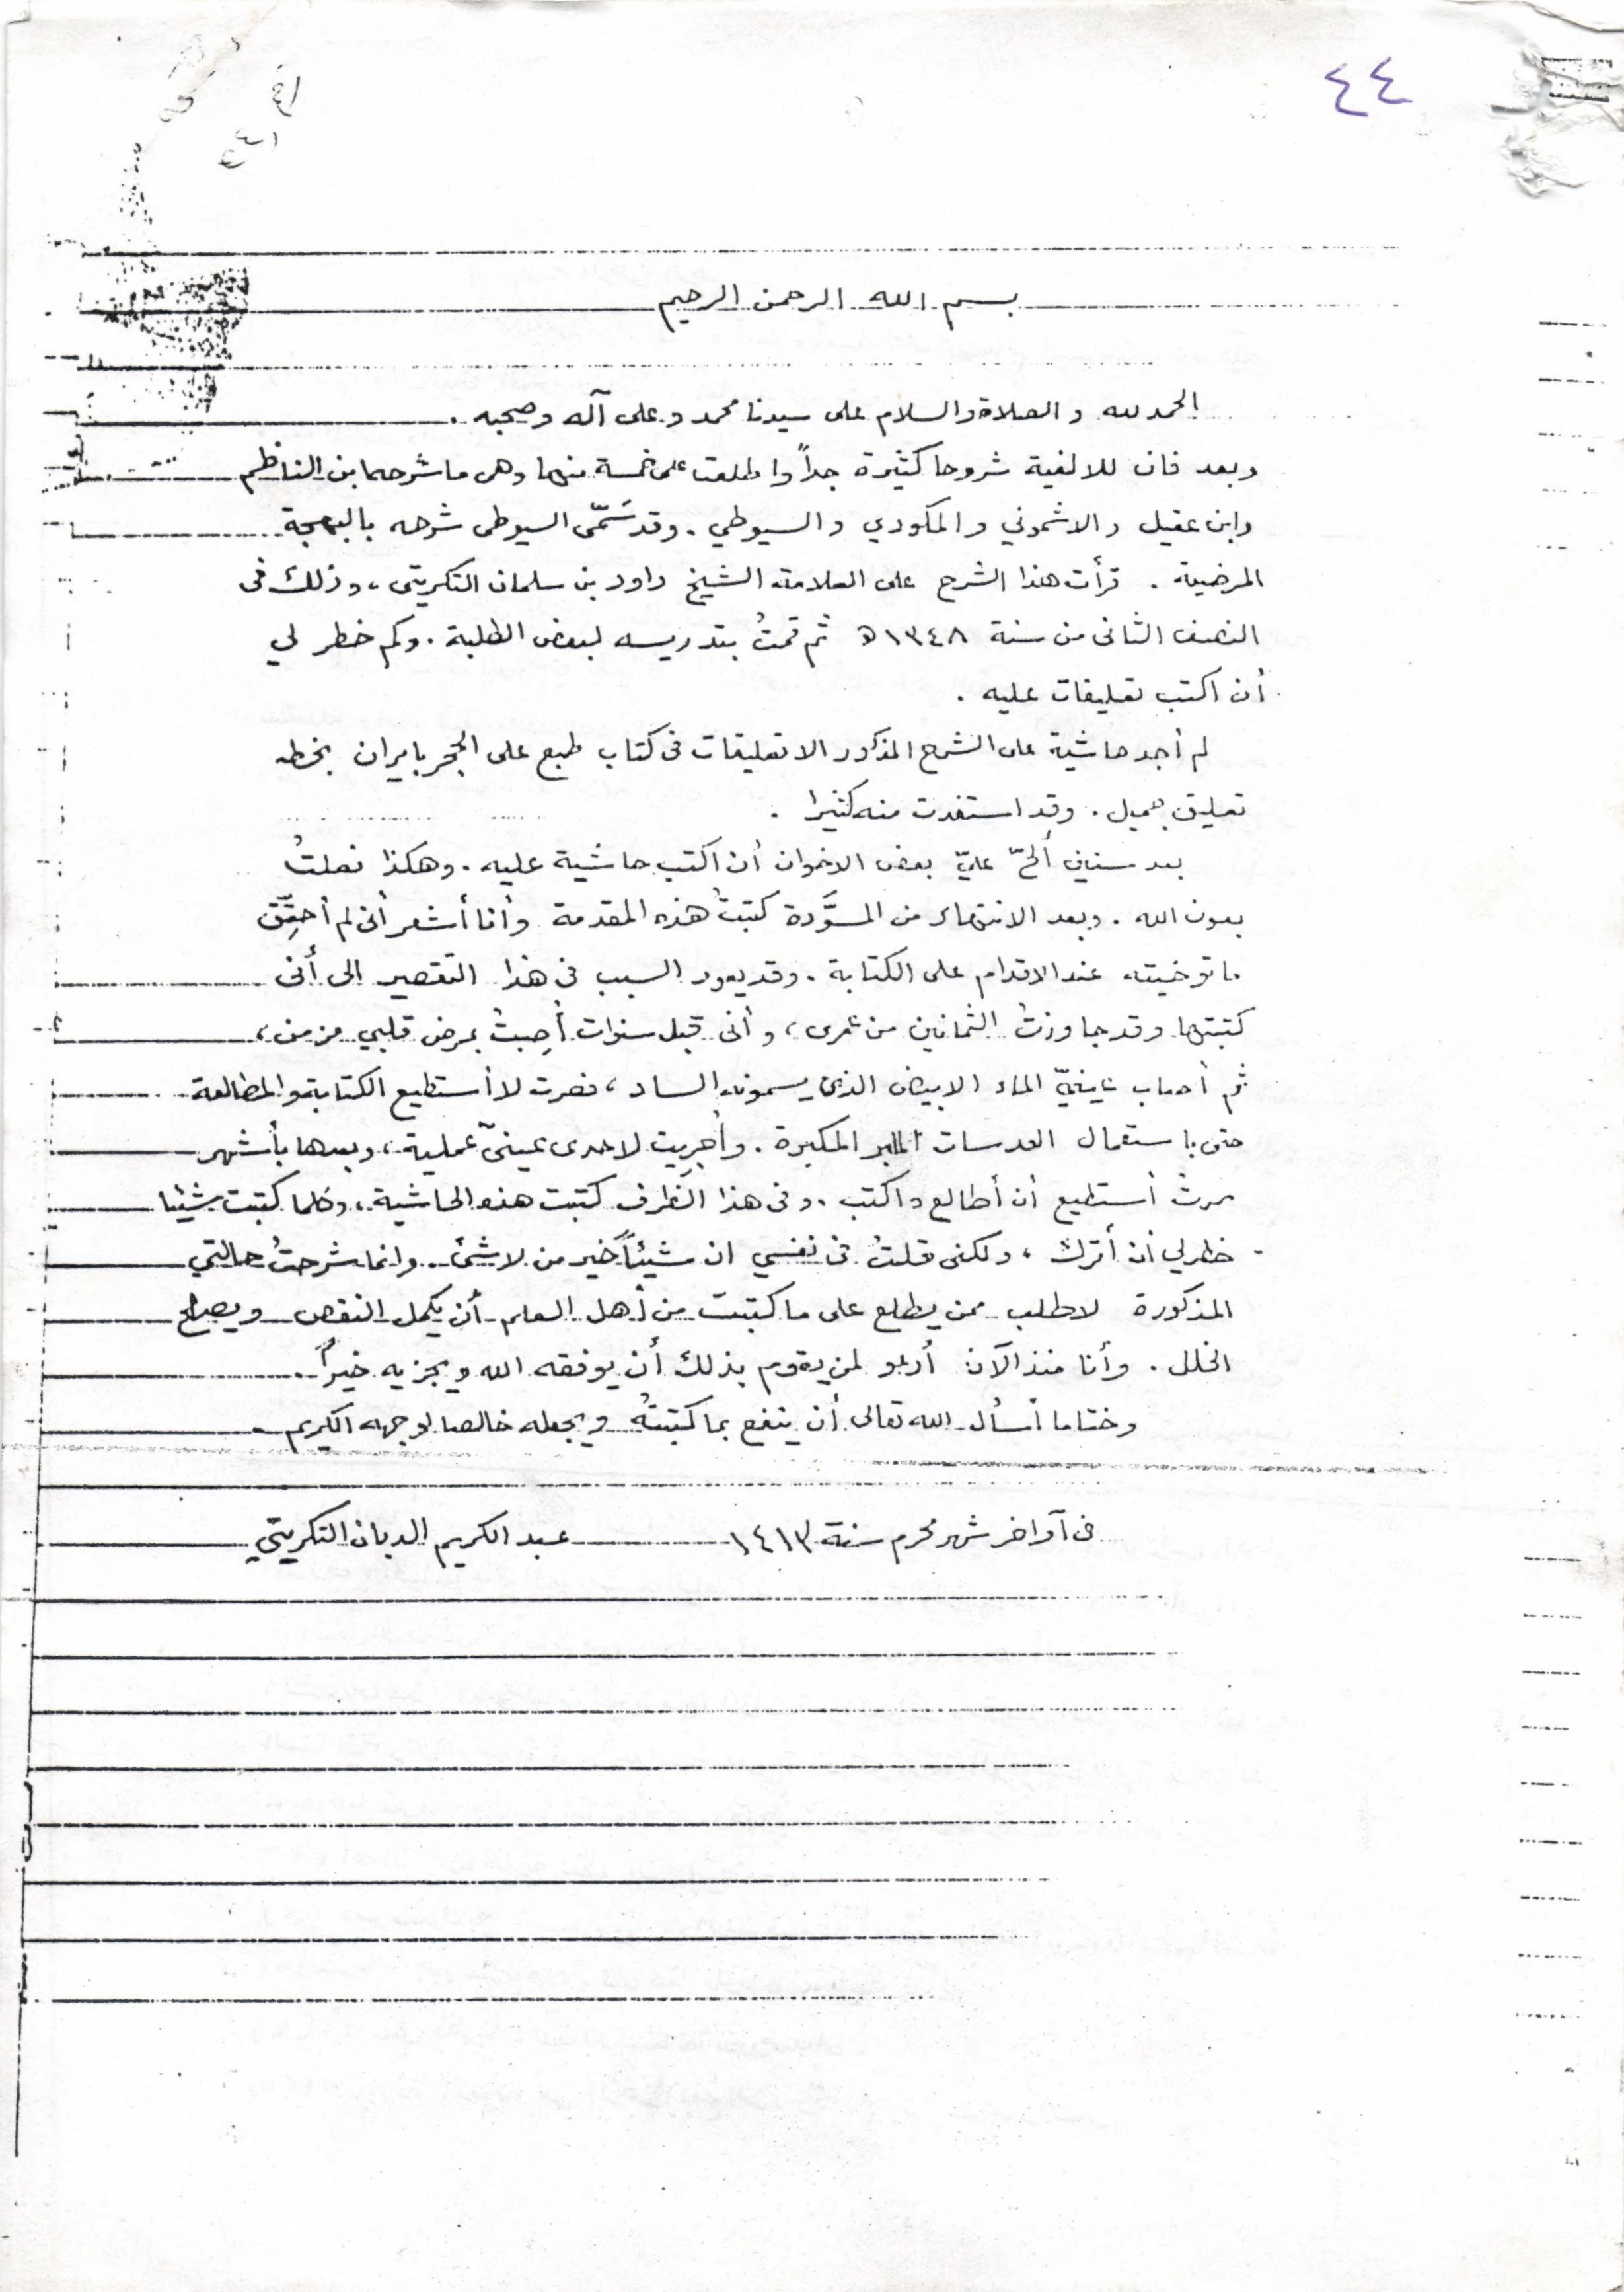 ٤٤
بسم الله الرحمن الرحيم
الحمد لله والصلاة والسلام على سيدنا محمد وعلى آله وصحبه .
وبعد فان للالفية شروحا كثيرة جداً واطلعت على خمسة منها وهي ما شرحها ابن الناظم
وابن عقيل والاشموني والمكودي والسيوطي . وقد سَمّى السيوطي شرحه بالبهجة
المرضية . قرأت هذا الشرح على العلامة الشيخ داود بن سلمان التكريتي ، وذلك في
النصف الثاني من سنة ١٣٤٨ ه ثم قمتُ بتدريسه لبعض الطلبة . وكم خطر لي
أن اكتب تعليقات عليه .
لم أجد حاشية على الشرح المذكور الا تعليقات في كتاب طبع على الحجر بايران بخطه
تعليق جميل . وقد استفدت منه كثيرا .
بعد سنين ألحّ عليّ بعض الاخوان أن اكتب حاشية عليه . وهكذا فعلتُ
بعون الله . وبعد الانتهاء من المسوَّدة كتبتُ هذه المقدمة وأنا أشعر أني لم أحقِّق
ما توخيته عند الاقدام على الكتابة . وقد يعود السبب في هذا التقصير الى أني
كتبتها وقد جاوزتُ الثمانين من عمري ، وأني قبل سنوات أُصِبتُ بمرض قلبي مزمن ،
ثم أصاب عينيّ الماء الابيض الذي يسمونه الساد ، فصرت لا أستطيع الكتابة والمطالعة
حتى باستعمال العدسات المكبرة . وأُجرِيت لاحدى عينيّ عملية ، وبعدها بأشهر
صرتُ أستطيع أن أطالع واكتب . وفي هذا الظرف كتبت هذه الحاشية ، وكلما كتبت شيئا
خطر لي أن أترك ، ولكني قلتُ في نفسي ان شيئاً خير من لا شئ . وانما شرحتُ حالتي
المذكورة لاطلب ممن يطلع على ما كتبت من أهل العلم أن يكمل النقص ويصلح
الخلل . وأنا منذ الآن أدعو لمن يقوم بذلك أن يوفقه الله ويجزيه خيراً .
وختاما أسأل الله تعالى أن ينفع بما كتبتُه ويجعله خالصا لوجهه الكريم .
في آواخر شهر محرم سنة ١٤١٣ عبد الكريم الدبان التكريتي